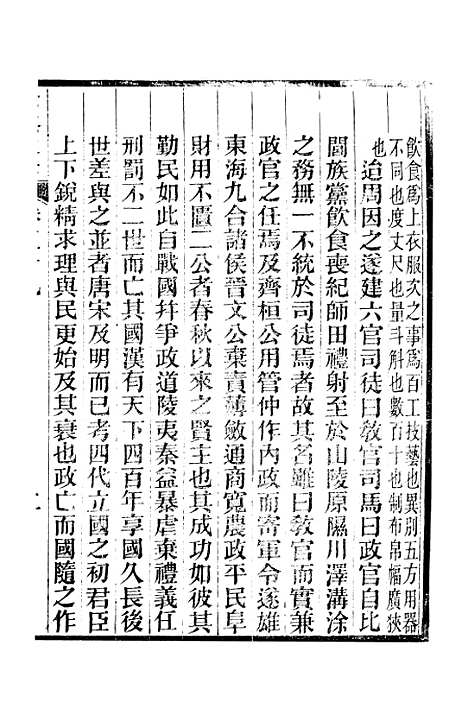 飲食爲上衣服次之事爲百工技藝也異別五方用器
不同也度丈尺也量斗斛也數百十也制布帛幅廣狹
也
迨周因之遂建六官司徒曰敎官司馬曰政官自比
閭族黨飮食喪紀師田禮射至於山陵原隰川澤溝涂
之務無一不統於司徒焉者故其名雖曰敎官而實兼
政官之任焉及齊桓公用管仲作內政而寄軍令遂雄
東海九合諸侯晉文公棄責薄斂通商寬農政平民阜
財用不匱二公者春秋以來之賢主也其成功如彼其
勤民如此自戰國幷爭政道陵夷秦益暴虐棄禮義任
刑罰不二世而亡其國漢有天下四百年享國久長後
世差與之並者唐宋及明而已考四代立國之初君臣
上下銳精求理與民更始及其衰也政亡而國隨之作